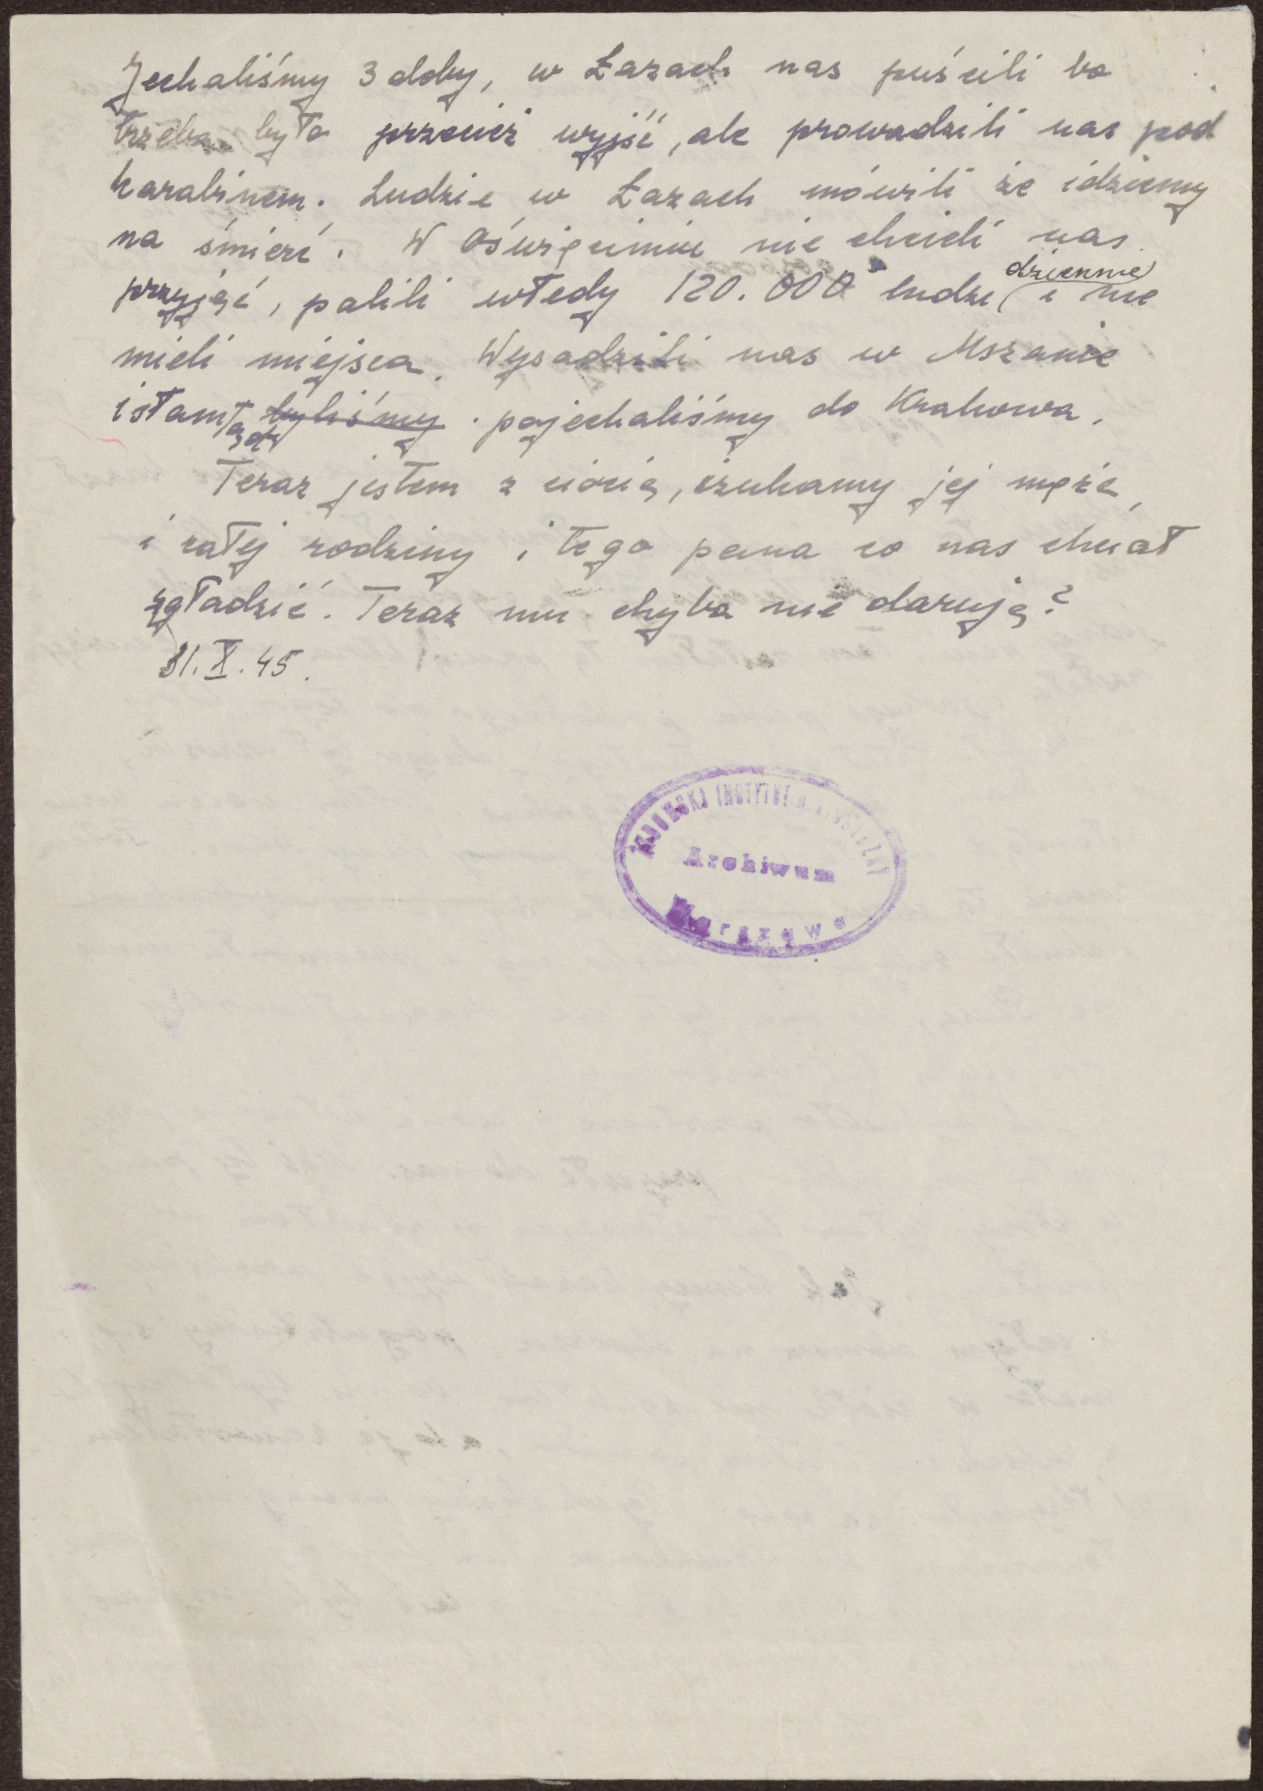 Jechaliśmy 3 doby, w Łazach nas puścili bo
trzeba było przecież wyjść, ale prowadzili nas pod
karabinem. Ludzie w Łazach mówili że idziemy
na śmierć. W Oświęcimiu nie chcieli nas
przyjąć, palili wtedy 120.000 ludzi dziennie i nie
mieli miejsca. Wysadzili nas w Mszanie
i stamtąd byliśmy pojechaliśmy do Krakowa.
Teraz jestem z ciocią, szukamy jej męża
i całej rodziny i tego pana co nas chciał
zgładzić. Teraz mu chyba nie darują?
31.X.45.
ŻYDOWSKI INSTYTUT HISTORYCZNY
Archiwum
Warszawa